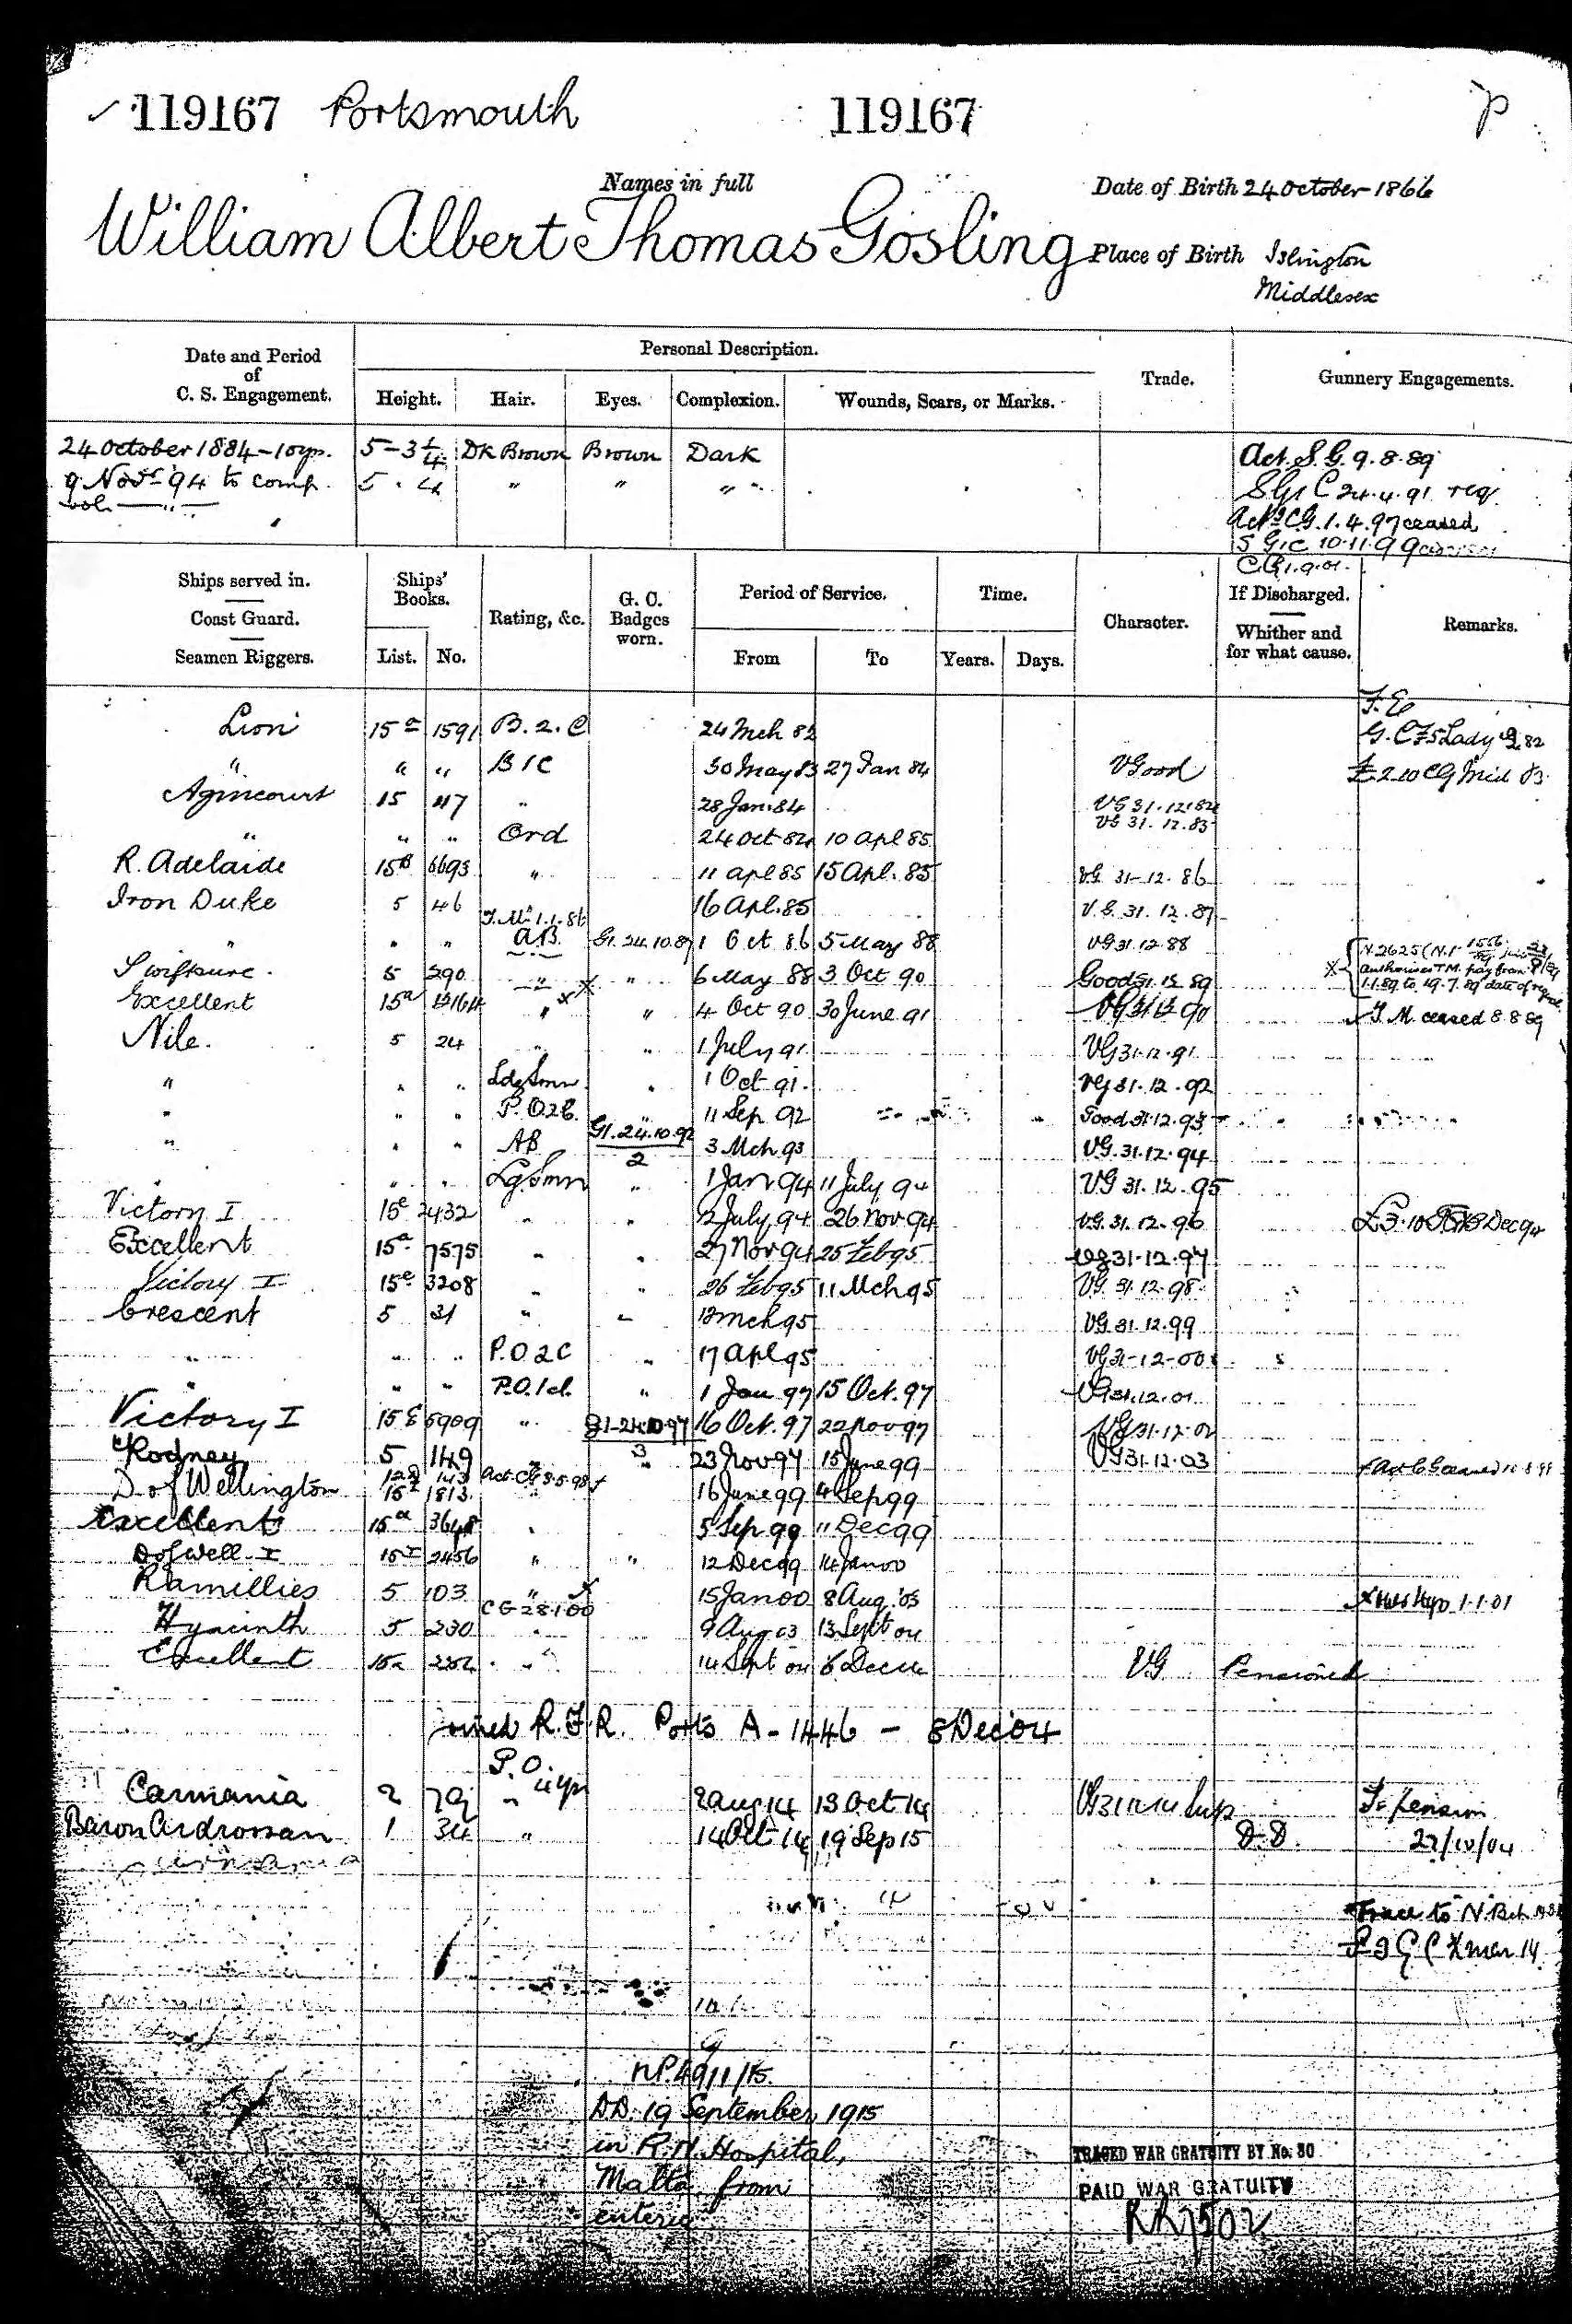 119167 Portsmouth 119167 P
Names in full
Date of Birth 24 October 1866
William Albert Thomas Gosling
Place of Birth Islington
Middlesex
Date and Period of C. S. Engagement.
Personal Description.
Height. Hair. Eyes. Complexion. Wounds, Scars, or Marks.
Trade.
Gunnery Engagements.
24 October 1884 - 10 yrs. 5-3 1/4 Dk Brown Brown Dark Act. S.G. 9.8.89
9 Novr 94 to comp. 5.4 " " " S.G. C 24.4.91 req
vol — " — Actg C.G. 1.4.97 ceased
S G.C 10.11.99
C.G. 1.9.01.
Ships served in. Coast Guard. Seamen Riggers.
Ships' Books. List. No.
Rating, &c.
G. C. Badges worn.
Period of Service. From To
Time. Years. Days.
Character.
If Discharged. Whither and for what cause.
Remarks.
Lion 15a 1591 B.2.C 24 Mch 82
" " " B 1 C 30 May 83 27 Jan 84 VGood
Agincourt 15 47 " 28 Jan. 84 VG 31.12.84
VG 31.12.85
" " " Ord 24 Oct 84 10 Apl 85
R. Adelaide 15B 6693 " 11 Apl 85 15 Apl. 85 VG 31-12.86
Iron Duke 5 46 16 Apl. 85 V.G. 31.12.87
T.M. 1.1.86
" " " A.B. G1.24.10.87 1 Oct 86 5 May 88 VG 31.12.88
Swiftsure. 5 290 " " 6 May 88 3 Oct 90 Good 31.12.89 authorises T.M. pay from
1.1.89 to 19.7.89 date of
Excellent 15a 12164 " " 4 Oct 90 30 June 91 VG 31.12.90 T.M. ceased 8.8.89
Nile. 5 24 " " 1 July 91 VG 31.12.91
" " " Ldg Smn " 1 Oct 91. VG 31.12.92
" " " P.O.2C. " 11 Sep 92 Good 31.12.93
" " " AB G1.24.10.92 2 3 Mch 93 VG.31.12.94
" " " Lg Smn " 1 Jan 94 11 July 94 VG 31.12.95
Victory I 15e 2432 " " 12 July 94 26 Nov 94 VG.31.12.96
Excellent 15a 7575 " " 27 Nov 94 25 Feb 95 VG 31.12.97
Victory I 15e 3208 " " 26 Feb 95 11 Mch 95 VG. 31.12.98
Crescent 5 31 " " 12 Mch 95 VG 31.12.99
" " " P.O 2C " 17 Apl 95 VG 31-12-00
" " " P.O. 1 cl. " 1 Jan 97 15 Oct. 97 VG 31.12.01
Victory I 15E 5909 " G1-24.10.97 3 16 Oct. 97 22 Nov 97 VG 31.12.02
Rodney 5 149 " " 23 Nov 97 15 June 99 VG 31.12.03
D. of Wellington 15 1813 16 June 99 4 Sep 99
Excellent 15a 3648 " 5 Sep 99 11 Dec 99
D of Well. I 15I 2456 " " 12 Dec 99 14 Jan 00
Ramillies 5 103 " 15 Jan 00 8 Aug '03
Hyacinth 5 230 " 9 Aug 03 13 Sept 04
Excellent 15a " 14 Sept 04 6 Dec 04 VG Pensioned
Joined R.F.R. Ports A-1446 - 8 Dec 04
P.O.
Carmania 2 79 " 2 Aug 14 13 Oct 14 To Pension
Baron Ardrossan 1 34 " 14 Oct 14 19 Sep 15 D.D. 27/10/04
N.P. 4911/15.
DD. 19 September 1915
in R.N. Hospital,
Malta from
enteric
TRACED WAR GRATUITY BY No. 30
PAID WAR GRATUITY